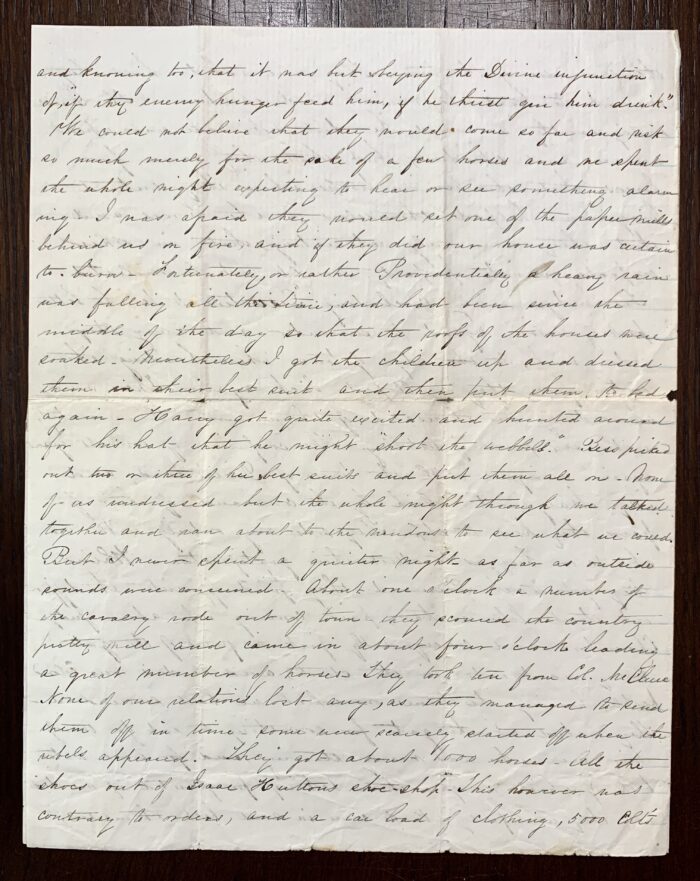 and knowing too, that it was but obeying the Divine injunction
of, "if thy enemy hunger feed him, if he thirst give him drink."
We could not believe that they would come so far and risk
so much merely for the sake of a few horses and we spent
the whole night expecting to hear or see something alarm
ing. I was afraid they would set one of the paper mills
behind us on fire, and if they did our house was certain
to burn - Fortunately, or rather Providentially a heavy rain
was falling all the time, and had been since the
middle of the day so that the roofs of the houses were
soaked. Nevertheless I got the children up and dressed
them in their best suit and then put them to bed
again - Harry got quite excited and hunted around
for his hat that he might "shoot the webbels." Bess picked
out two or three of her best suits and put them all on. None
of us undressed but the whole night through we talked
together and ran about to the windows to see what we could.
But I never spent a quieter night as far as outside
sounds were concerned. About one o'clock a number of
the cavalry rode out of town they scoured the country
pretty well and came in about four o'clock leading
a great number of horses. They took ten from Col. McClure
None of our relations lost any, as they managed to send
them off in time some were scarcely started off when the
rebels appeared. They got about 1000 horses - All the
shoes out of Isaac Huttons shoe-shop This however was
contrary to orders, and a car load of clothing, 5000 Colt's